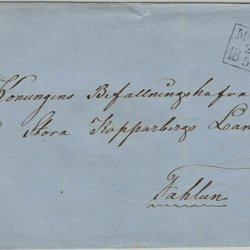 Konungens Befallningshafva
Stora Kopparbergs Län
Fahlun